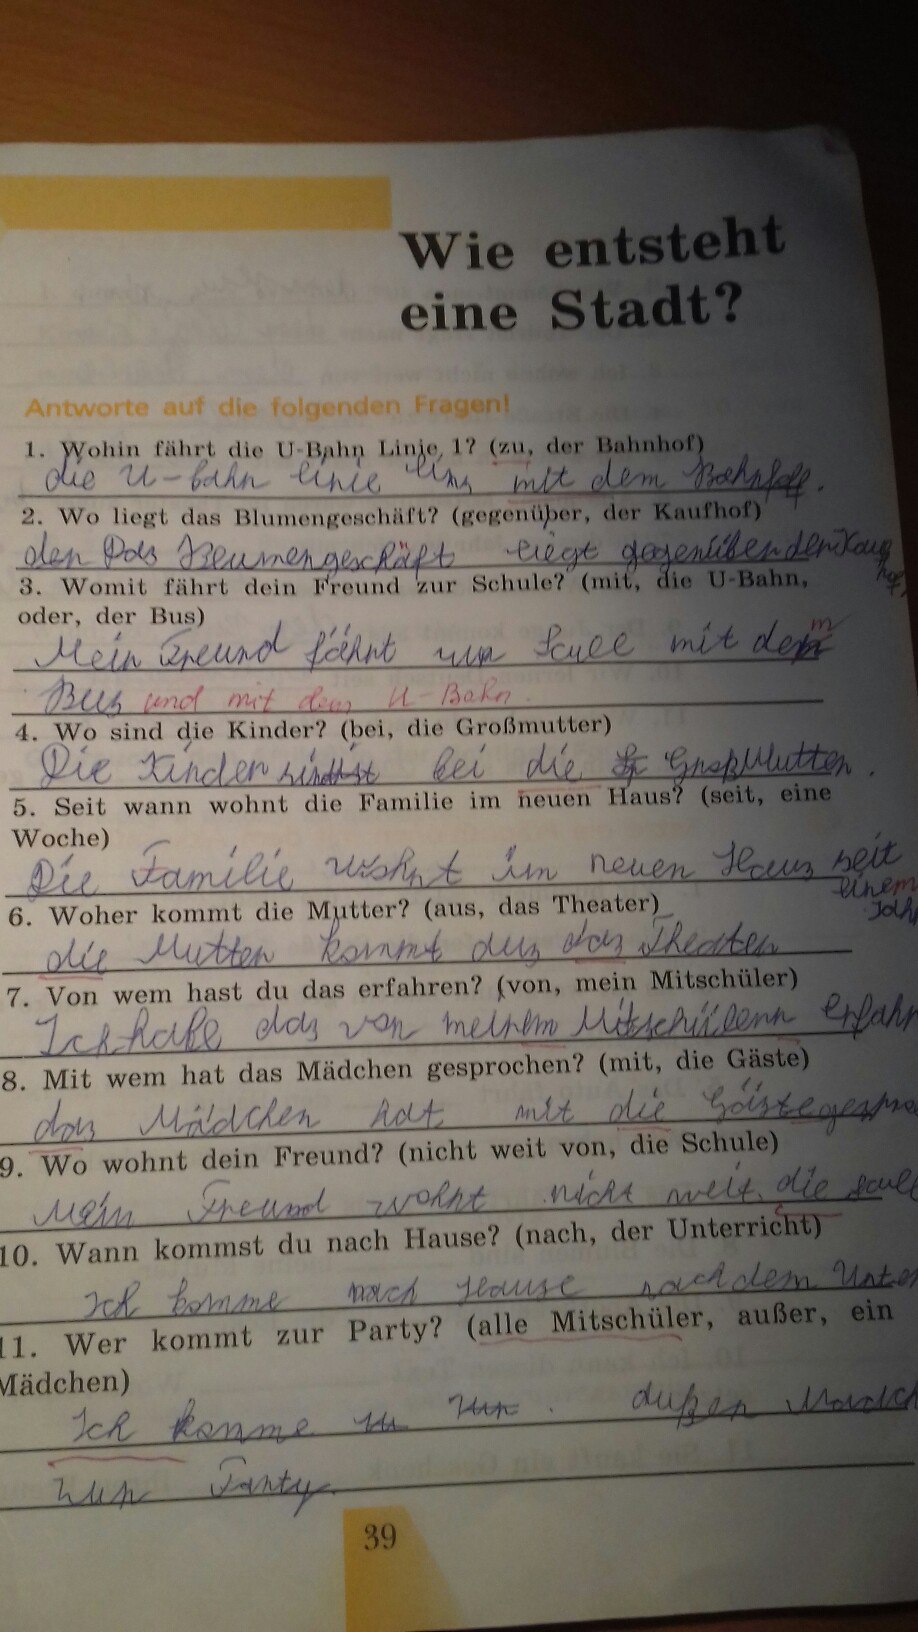 Wie entsteht
eine Stadt?
Antworte auf die folgenden Fragen!
1. Wohin fährt die U-Bahn Linie 1? (zu, der Bahnhof)
die U-bahn linie mit dem
2. Wo liegt das Blumengeschäft? (gegenüber, der Kaufhof)
Das liegt gegenüber
3. Womit fährt dein Freund zur Schule? (mit, die U-Bahn,
oder, der Bus)
Mein Freund fährt mit dem
Bus und mit dem U-Bahn.
4. Wo sind die Kinder? (bei, die Großmutter)
Die Kinder bei die
5. Seit wann wohnt die Familie im neuen Haus? (seit, eine
Woche)
Die Familie wohnt im neuen Haus seit
einem
6. Woher kommt die Mutter? (aus, das Theater)
die Mutter kommt aus das Theater
7. Von wem hast du das erfahren? (von, mein Mitschüler)
Ich habe das von meinem
8. Mit wem hat das Mädchen gesprochen? (mit, die Gäste)
das Mädchen hat mit die Gäste
9. Wo wohnt dein Freund? (nicht weit von, die Schule)
Mein Freund wohnt nicht weit die
10. Wann kommst du nach Hause? (nach, der Unterricht)
Ich komme nach Hause nach dem
11. Wer kommt zur Party? (alle Mitschüler, außer, ein
Mädchen)
Ich komme
Party.
39